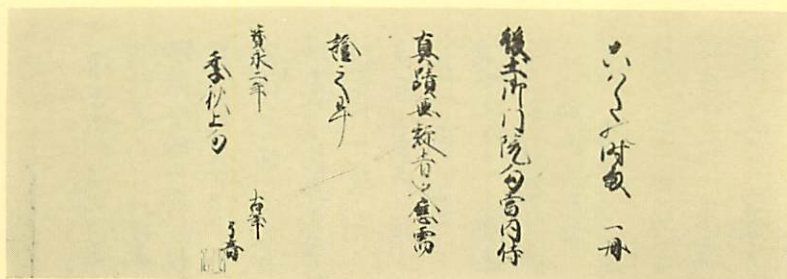 こハた乃時雨 一冊
後土御門院勾當内侍
真蹟無疑者也應需
證之畢
寳永二年
季秋上旬
古筆
了音